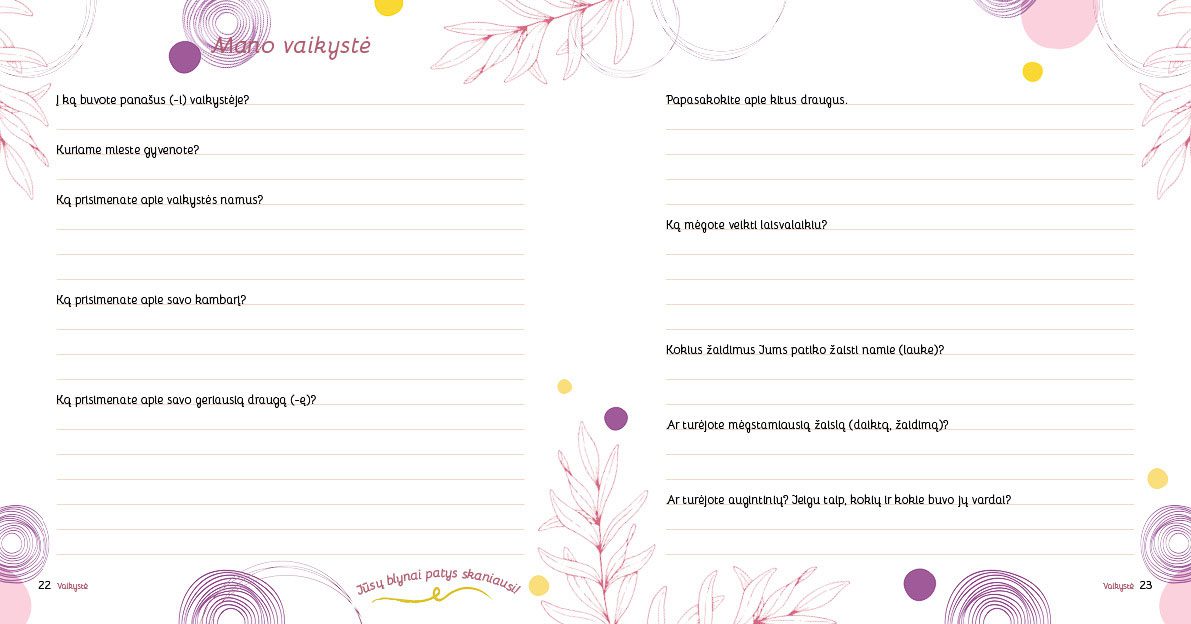 Mano vaikystė
Į ką buvote panašus (-i) vaikystėje?
Kuriame mieste gyvenote?
Ką prisimenate apie vaikystės namus?
Ką prisimenate apie savo kambarį?
Ką prisimenate apie savo geriausią draugą (-ę)?
Jūsų blynai patys skaniausi!
22 Vaikystė
Papasakokite apie kitus draugus.
Ką mėgote veikti laisvalaikiu?
Kokius žaidimus Jums patiko žaisti namie (lauke)?
Ar turėjote mėgstamiausią žaislą (daiktą, žaidimą)?
Ar turėjote augintinių? Jeigu taip, kokių ir kokie buvo jų vardai?
Vaikystė 23